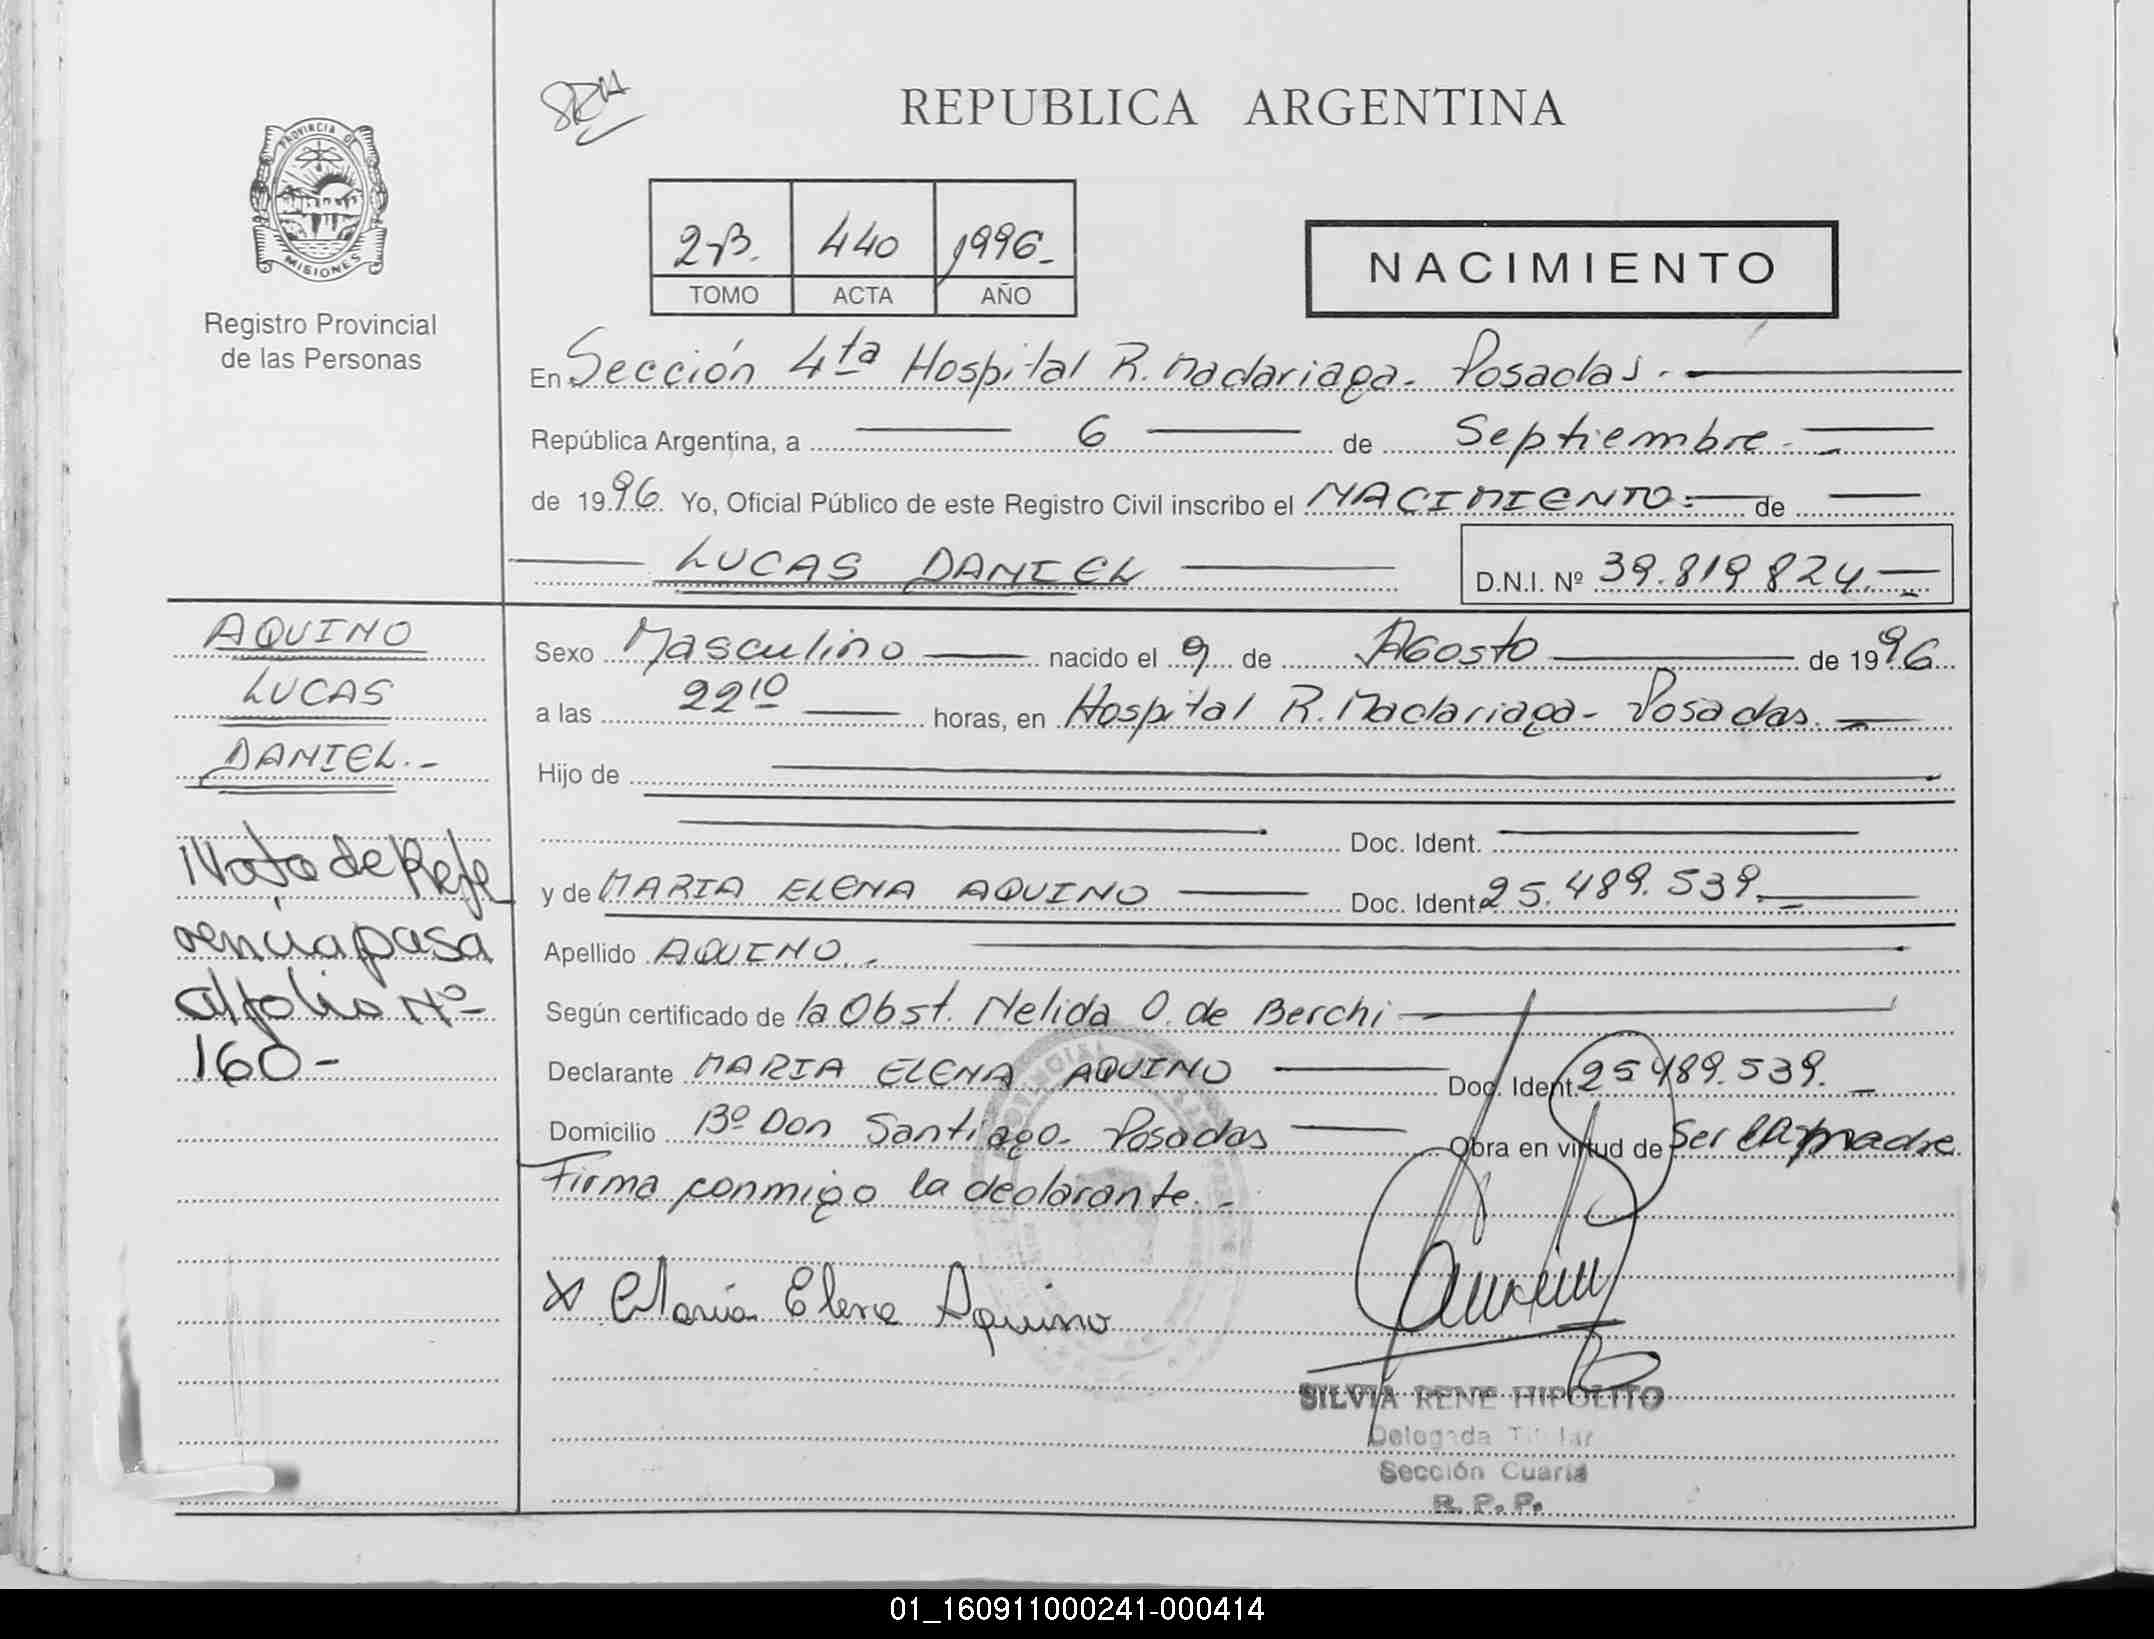 REPUBLICA ARGENTINA
PROVINCIA DE
MISIONES
Registro Provincial
de las Personas
2-B. 440 1996.-
TOMO ACTA AÑO
NACIMIENTO
En Sección 4ta Hospital R. Madariaga - Posadas.
República Argentina, a 6 de Septiembre.-
de 1996. Yo, Oficial Público de este Registro Civil inscribo el NACIMIENTO.- de
LUCAS DANIEL D.N.I. Nº 39.819.824.-
AQUINO
LUCAS
DANIEL.-
Nota de Refe
rencia pasa
al folio Nº-
160-
Sexo Masculino nacido el 9 de Agosto de 1996
a las 22 10 horas, en Hospital R. Madariaga - Posadas.
Hijo de
Doc. Ident.
y de MARIA ELENA AQUINO Doc. Ident. 25.489.539.-
Apellido AQUINO.-
Según certificado de la Obst. Nelida O. de Berchi
Declarante MARIA ELENA AQUINO Doc. Ident. 25.489.539.-
Domicilio Bº Don Santiago - Posadas Obra en virtud de Ser la madre.
Firma conmigo la declarante.-
x María Elena Aquino
SILVIA RENE HIPOLITO
Delegada Titular
Sección Cuarta
R. P. P.
01_160911000241-000414